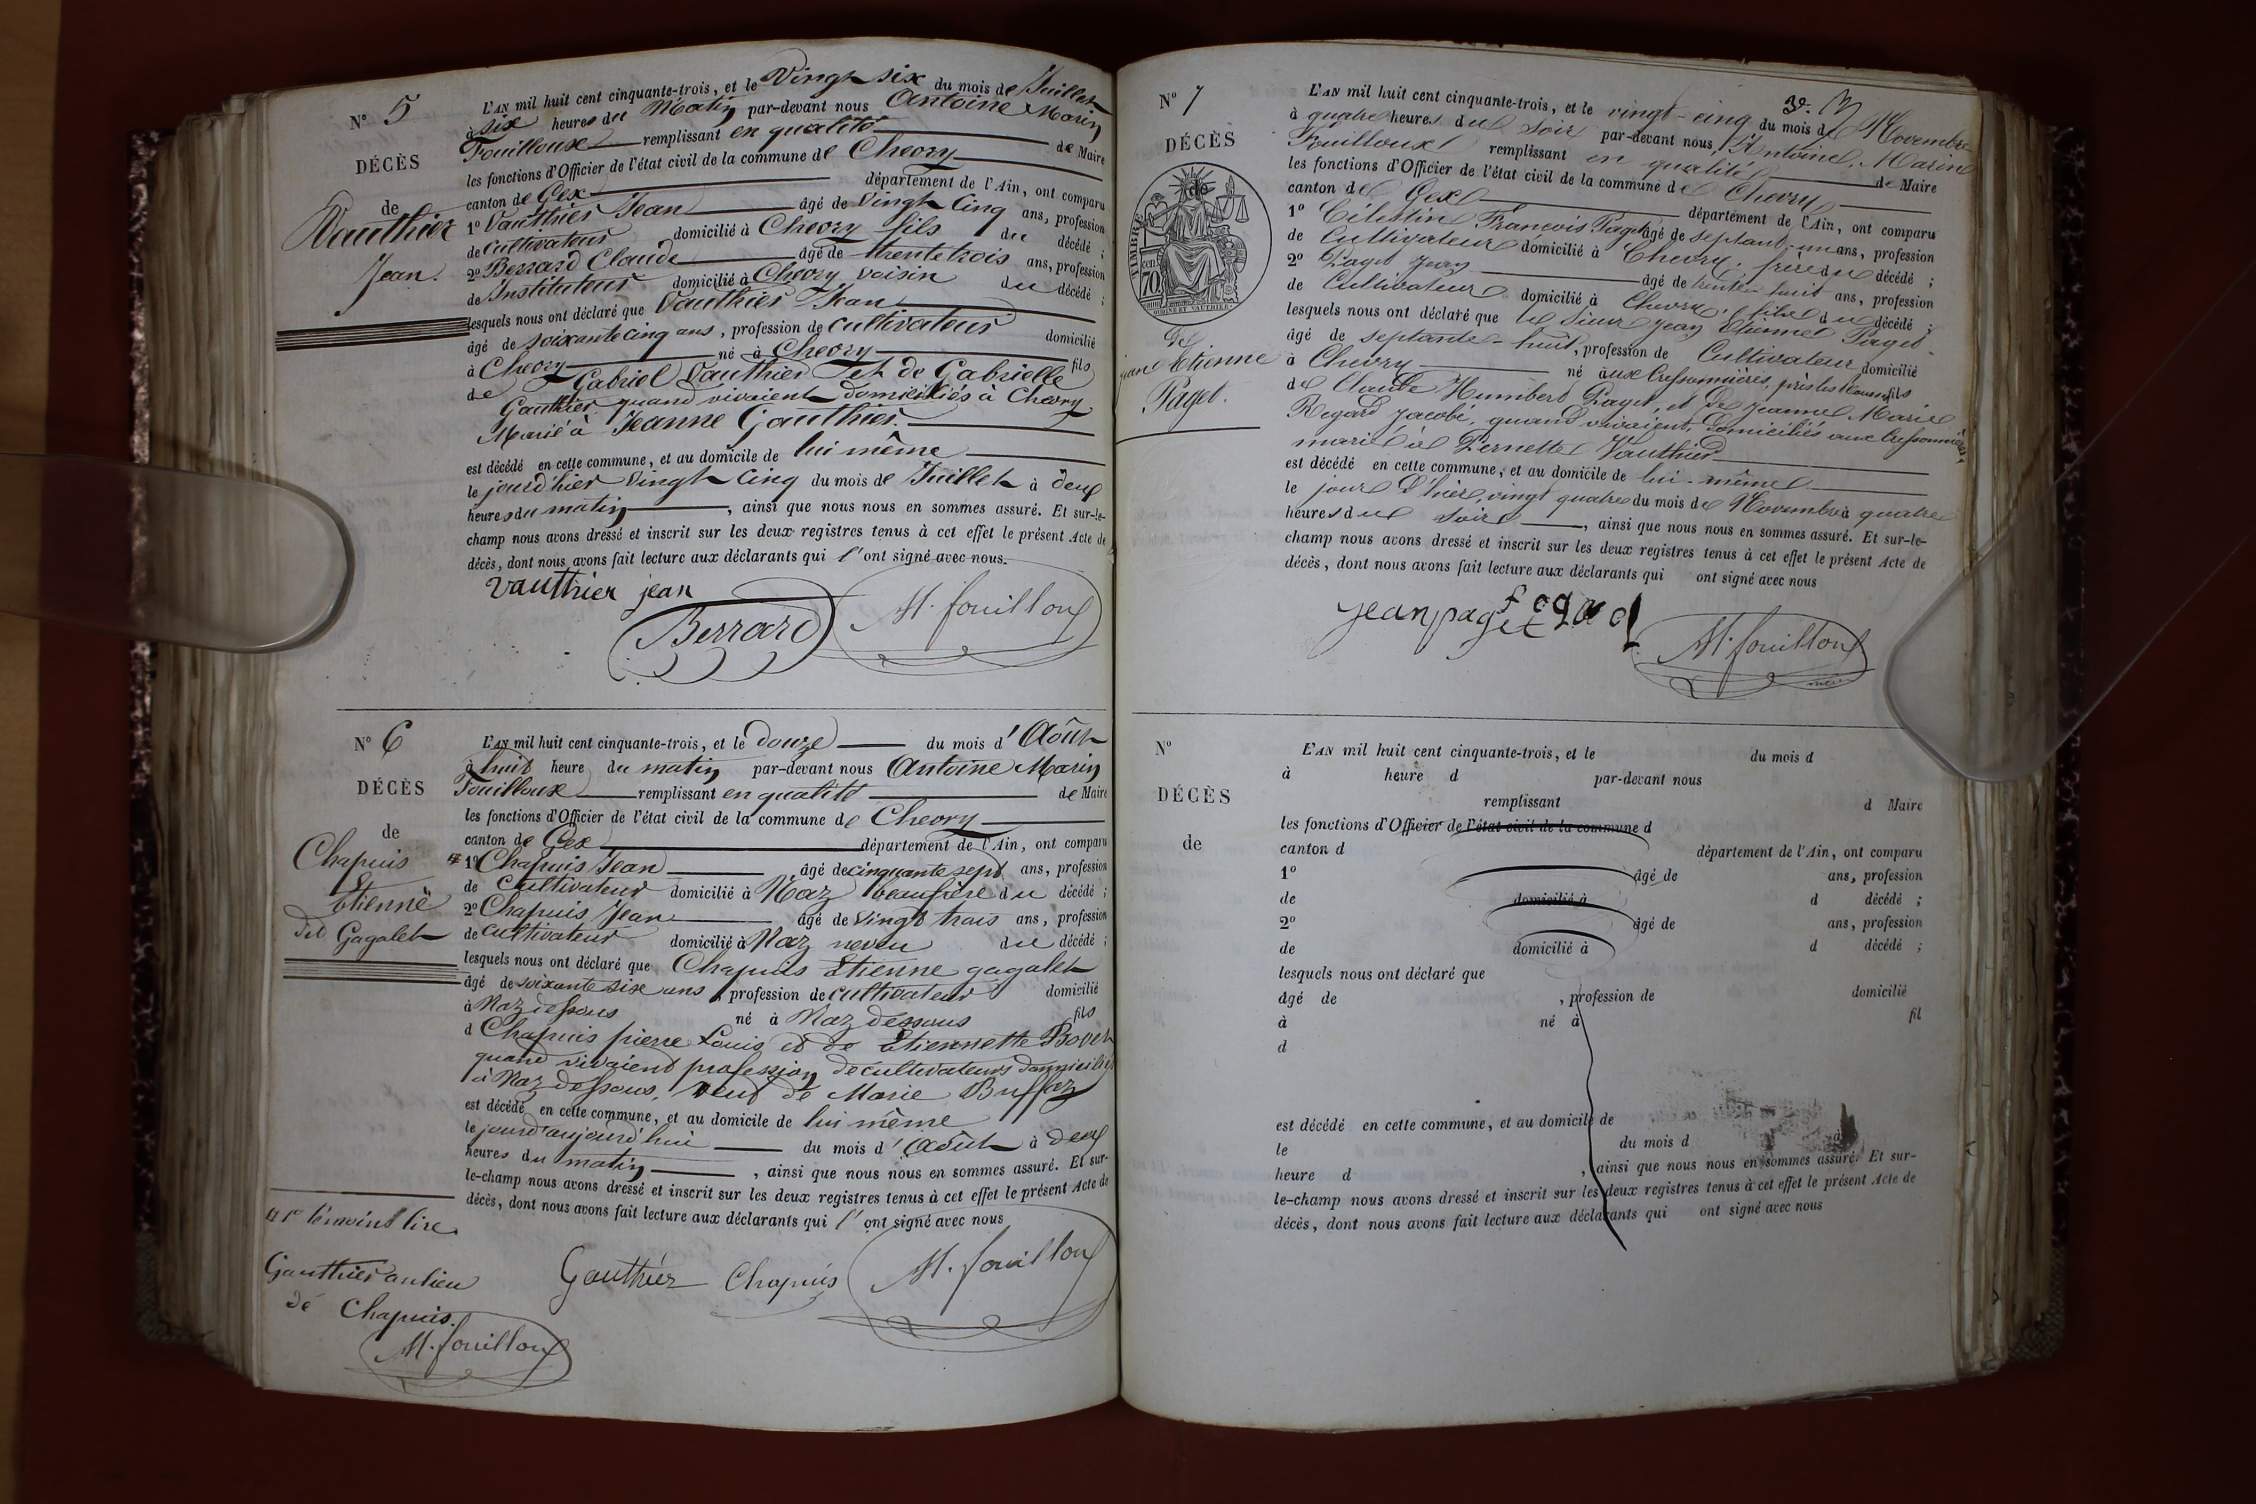 N° 5
DÉCÈS
de
Vauthier
Jean.
L'AN mil huit cent cinquante-trois, et le Vingt six du mois de Juillet
à six heures du Matin par-devant nous Antoine Marin
Fouilloux remplissant en qualité de Maire
les fonctions d'Officier de l'état civil de la commune de Chevry
canton de Gex département de l'Ain, ont comparu
1° Vauthier Jean âgé de Vingt Cinq ans, profession
de Cultivateur domicilié à Chevry fils du décédé ;
2° Berrard Claude âgé de trente trois ans, profession
de Instituteur domicilié à Chevry voisin du décédé ;
lesquels nous ont déclaré que Vauthier Jean
âgé de soixante cinq ans, profession de cultivateur domicilié
à Chevry né à Chevry fils
de Gabriel Vauthier et de Gabrielle
Gauthier quand vivaient domiciliés à Chevry
Marié à Jeanne Gauthier.
est décédé en cette commune, et au domicile de lui même
le jourd'hier Vingt Cinq du mois de Juillet à deux
heures du matin, ainsi que nous nous en sommes assuré. Et sur-le-
champ nous avons dressé et inscrit sur les deux registres tenus à cet effet le présent Acte de
décès, dont nous avons fait lecture aux déclarants qui l'ont signé avec nous.
Vauthier jean
Berrard M. fouilloux
N° 6
DÉCÈS
de
Chapuis
Etienne
dit Gagalet
L'AN mil huit cent cinquante-trois, et le douze du mois d'Août
à huit heure du matin par-devant nous Antoine Marin
Fouilloux remplissant en qualité de Maire
les fonctions d'Officier de l'état civil de la commune de Chevry
canton de Gex département de l'Ain, ont comparu
1° Chapuis Jean âgé de cinquante sept ans, profession
de Cultivateur domicilié à Naz beaufrère du décédé ;
2° Chapuis Jean âgé de Vingt trois ans, profession
de cultivateur domicilié à Naz neveu du décédé ;
lesquels nous ont déclaré que Chapuis Etienne gagalet
âgé de soixante six ans, profession de cultivateur domicilié
à Naz dessous né à Naz dessous fils
d Chapuis pierre Louis et de Etiennette Bovet
quand vivaient profession de cultivateurs domiciliés
à Naz dessous, veuf de Marie Buffaz
est décédé en cette commune, et au domicile de lui même
le jourd'aujourd'hui du mois d'Août à deux
heures du matin, ainsi que nous nous en sommes assuré. Et sur-
le-champ nous avons dressé et inscrit sur les deux registres tenus à cet effet le présent Acte de
décès, dont nous avons fait lecture aux déclarants qui l'ont signé avec nous
1r témoins lire
Gauthier au lieu
de Chapuis.
M. fouilloux
Gauthier Chapuis M. fouilloux
3e.
N° 7
DÉCÈS
TIMBRE
70
de
jean Etienne
Paget.
L'AN mil huit cent cinquante-trois, et le vingt-cinq du mois de Novembre
à quatre heures du soir par-devant nous, Antoine, Marin
Fouilloux remplissant en qualité de Maire
les fonctions d'Officier de l'état civil de la commune de Chevry
canton de Gex département de l'Ain, ont comparu
1° Célestin François Paget âgé de septante-un ans, profession
de Cultivateur domicilié à Chevry, frère du décédé ;
2° Paget Jean âgé de trente-huit ans, profession
de Cultivateur domicilié à Chevry, fils du décédé ;
lesquels nous ont déclaré que le sieur Jean Etienne Paget
âgé de septante-huit, profession de Cultivateur domicilié
à Chevry né aux Cressonnières, près les fils
de Claude Humbert Paget, et de Jeanne Marie
Regard Jacobé, quand vivaient, domiciliés aux Cressonnières
marié à Pernette Vauthier
est décédé en cette commune, et au domicile de lui-même
le jour d'hier, vingt quatre du mois de Novembre à quatre
heures du soir, ainsi que nous nous en sommes assuré. Et sur-le-
champ nous avons dressé et inscrit sur les deux registres tenus à cet effet le présent Acte de
décès, dont nous avons fait lecture aux déclarants qui ont signé avec nous
jean paget
M. fouilloux
N°
DÉCÈS
de
L'AN mil huit cent cinquante-trois, et le du mois d
à heure d par-devant nous
remplissant d Maire
les fonctions d'Officier de l'état civil de la commune d
canton d département de l'Ain, ont comparu
1° âgé de ans, profession
de domicilié à d décédé ;
2° âgé de ans, profession
de domicilié à d décédé ;
lesquels nous ont déclaré que
âgé de , profession de domicilié
à né à fil
d
est décédé en cette commune, et au domicile de
le du mois d à
heure d , ainsi que nous nous en sommes assuré. Et sur-
le-champ nous avons dressé et inscrit sur les deux registres tenus à cet effet le présent Acte de
décès, dont nous avons fait lecture aux déclarants qui ont signé avec nous